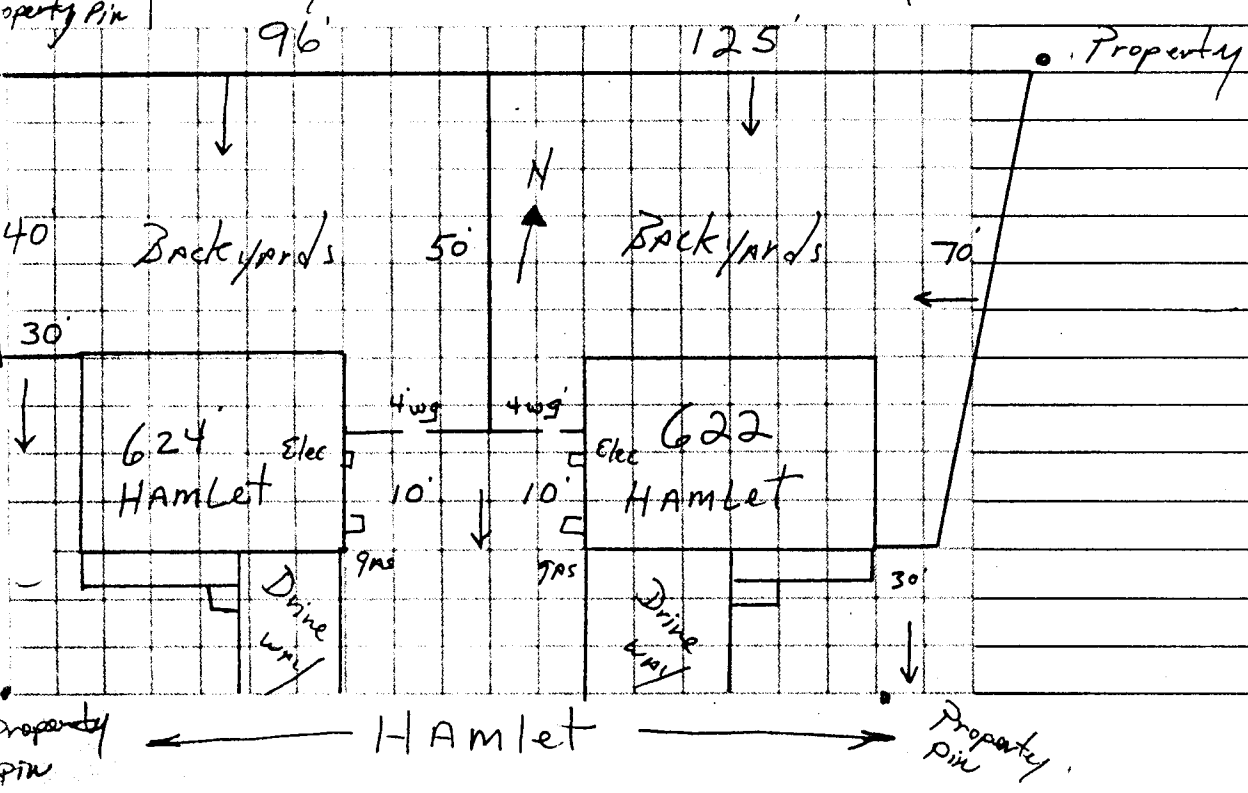 operty Pin
96'
125'
Property
N
40'
BAckyards
50'
BAckyards
70'
30'
4'wg
4wg'
624'
HAmLet
Elec
Elec
622
HAmLet
10'
10'
gas
gas
30'
Drive
way
Drive
way
HAmlet
Property
Pin
Property
Pin